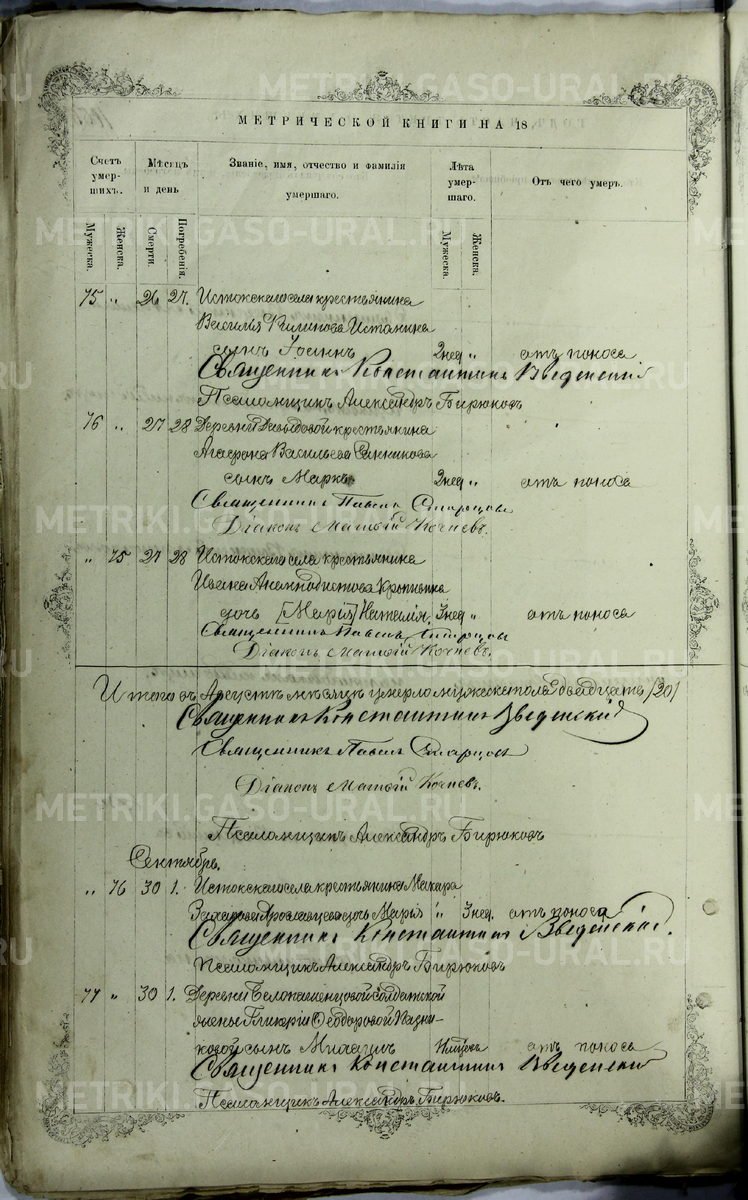 МЕТРИЧЕСКОЙ КНИГИ НА 18
Счетъ умер-шихъ.
Мѣсяцъ и день
Званіе, имя, отчество и фамилія умершаго.
Лѣта умер-шаго.
Отъ чего умеръ.
Мужеска.
Женска.
Смерти.
Погребенія.
Мужеска.
Женска.
75 „ 26 27. Истокскаго села крестьянина
Василья
сынъ Іоаннъ 2 нед „ отъ поноса
Священникъ Константинъ Введенскій
Псаломщикъ Александръ Бирюковъ
76 „ 27 28 Деревни крестьянина
Васильева
сынъ Маркъ 2 нед „ отъ поноса
Священникъ Павелъ Старцовъ
Діаконъ Матѳій Кочневъ.
„ 75 27 28 Истокскаго села крестьянина
Ивана
дочь [Марія] Наталія, 3 нед „ отъ поноса
Священникъ Павелъ Старцовъ
Діаконъ Матѳій Кочневъ.
Итого въ Августѣ мѣсяцѣ умерло мужеска пола двадцать /20/
Священникъ Константинъ Введенскій
Священникъ Павелъ Старцовъ
Діаконъ Матѳій Кочневъ.
Псаломщикъ Александръ Бирюковъ
Сентябрь.
„ 76 30 1. Истокскаго села крестьянина Макара
Захарова дочь Марія „ 3 нед. отъ поноса
Священникъ Константинъ Введенскій.
Псаломщикъ Александръ Бирюковъ
77 „ 30 1. Деревни солдатской
жены Гликеріи Ѳеодоровой
сынъ Михаилъ отъ поноса
Священникъ Константинъ Введенскій
Псаломщикъ Александръ Бирюковъ.
METRIKI.GASO-URAL.RU